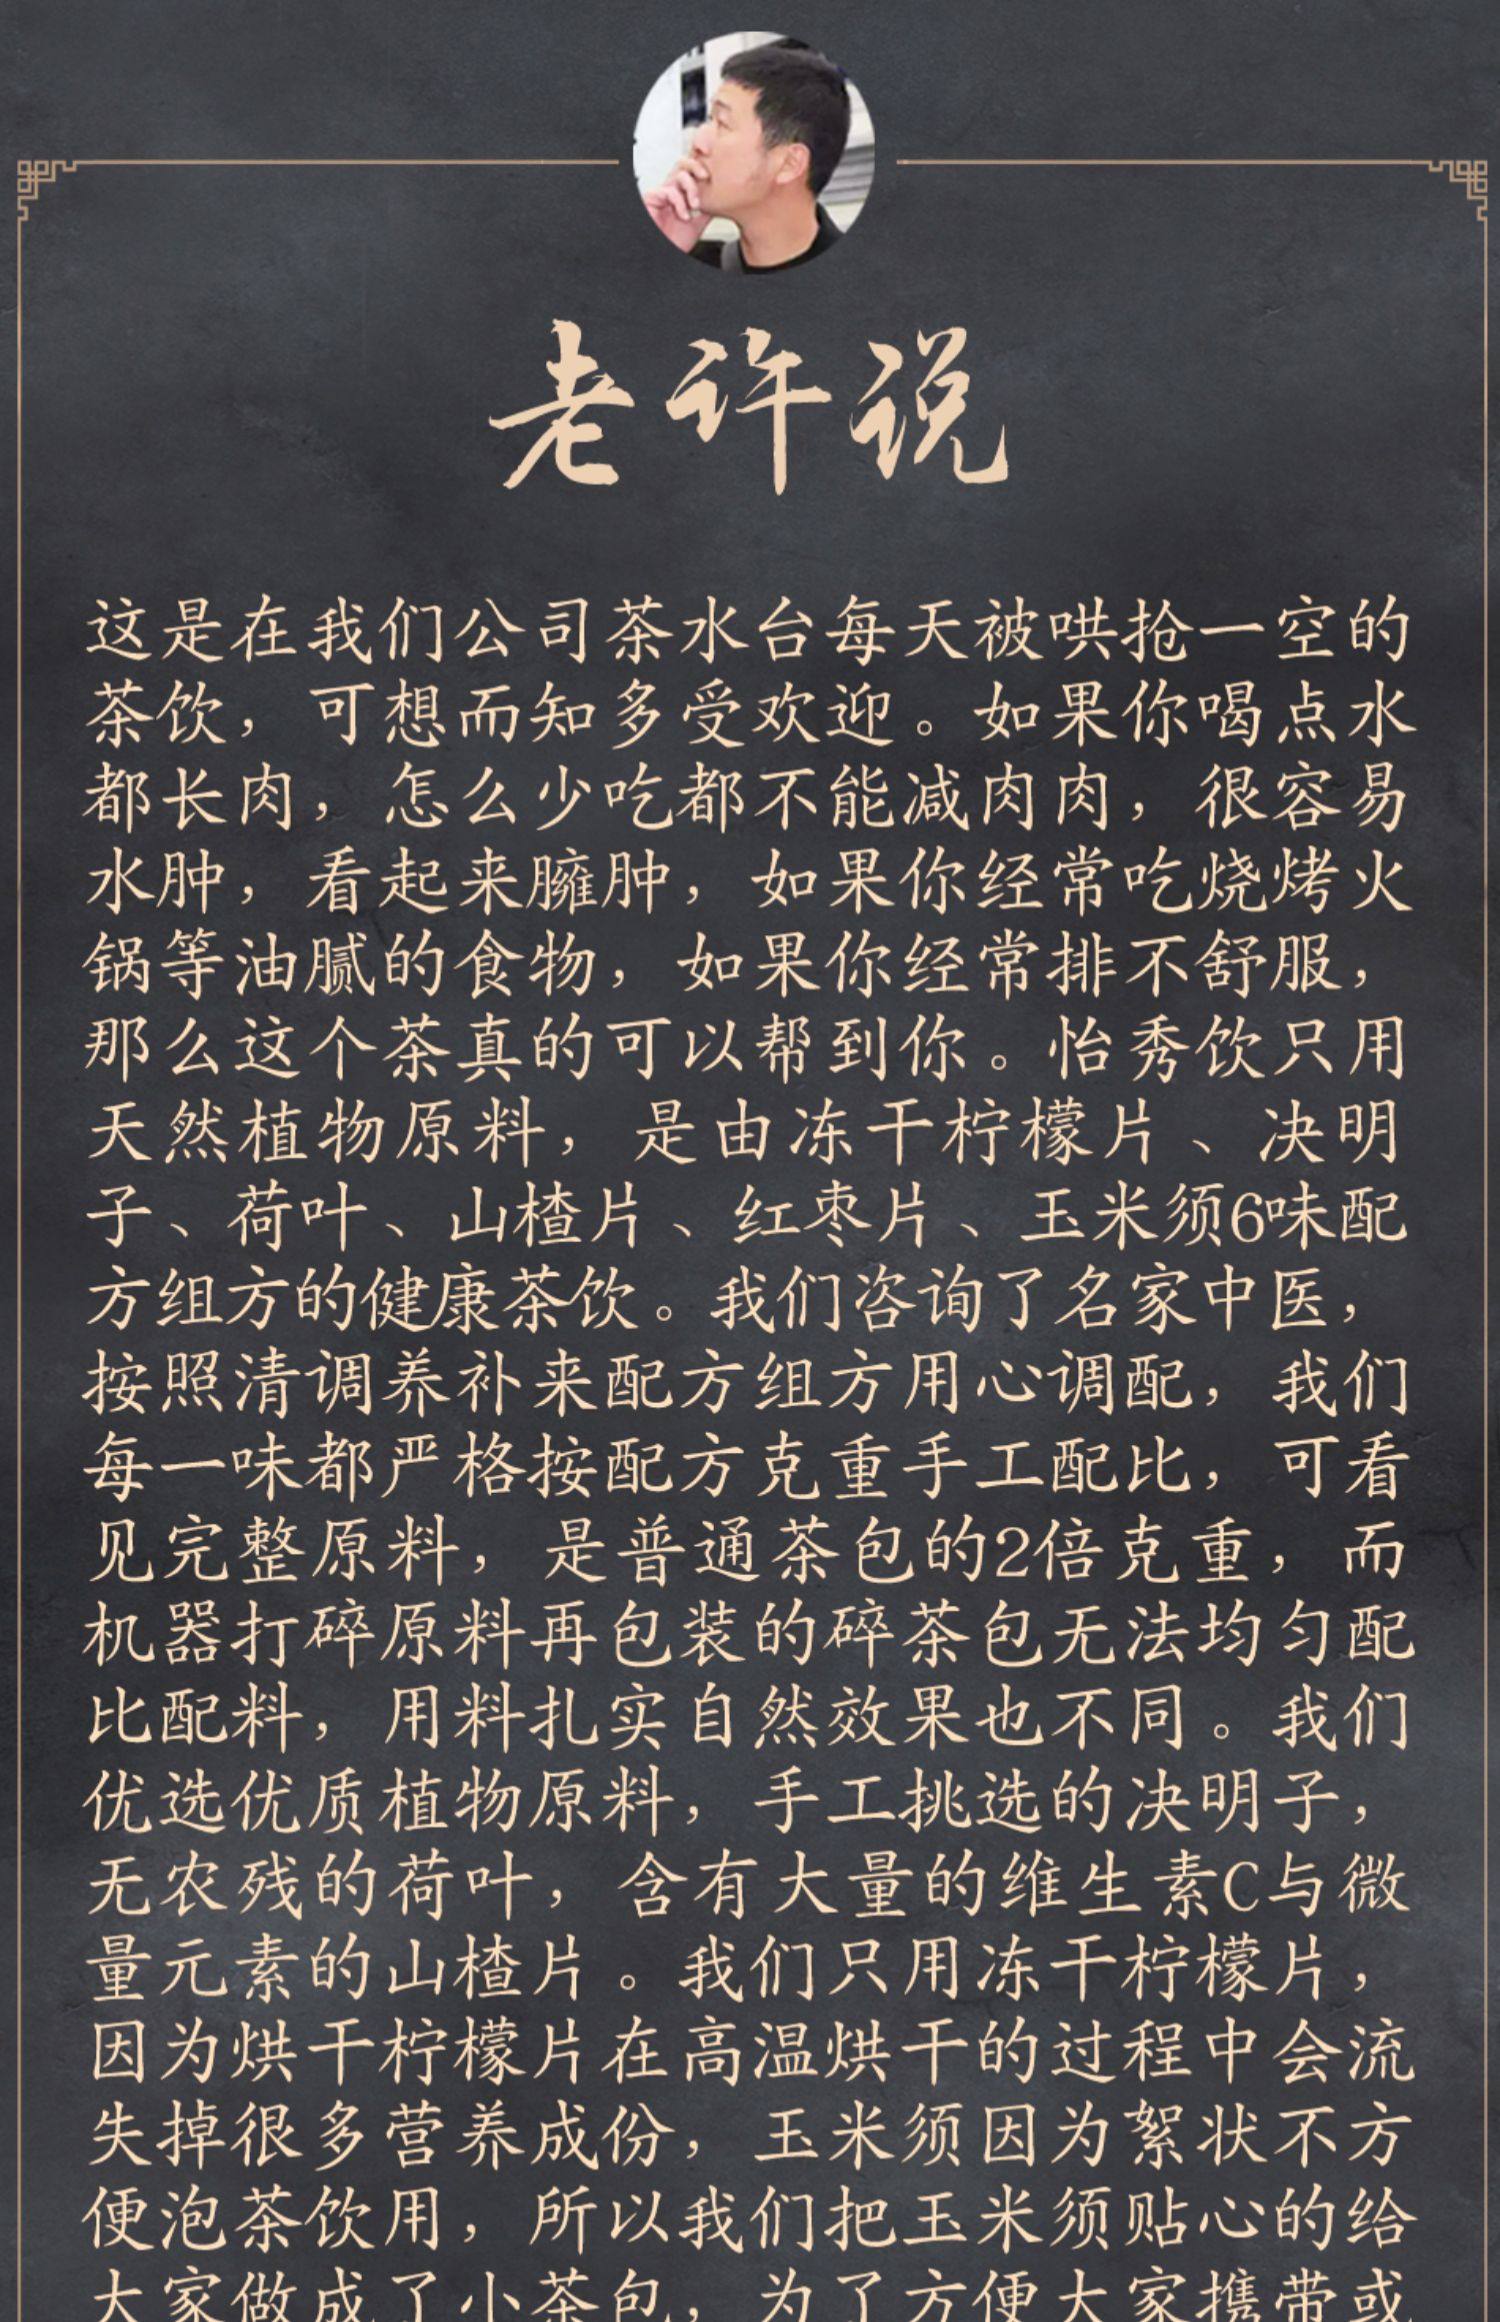 老许说
这是在我们公司茶水台每天被哄抢一空的
茶饮，可想而知多受欢迎。如果你喝点水
都长肉，怎么少吃都不能减肉肉，很容易
水肿，看起来臃肿，如果你经常吃烧烤火
锅等油腻的食物，如果你经常排不舒服，
那么这个茶真的可以帮到你。怡秀饮只用
天然植物原料，是由冻干柠檬片、决明
子、荷叶、山楂片、红枣片、玉米须6味配
方组方的健康茶饮。我们咨询了名家中医，
按照清调养补来配方组方用心调配，我们
每一味都严格按配方克重手工配比，可看
见完整原料，是普通茶包的2倍克重，而
机器打碎原料再包装的碎茶包无法均匀配
比配料，用料扎实自然效果也不同。我们
优选优质植物原料，手工挑选的决明子，
无农残的荷叶，含有大量的维生素C与微
量元素的山楂片。我们只用冻干柠檬片，
因为烘干柠檬片在高温烘干的过程中会流
失掉很多营养成份，玉米须因为絮状不方
便泡茶饮用，所以我们把玉米须贴心的给
大家做成了小茶包，为了方便大家携带或